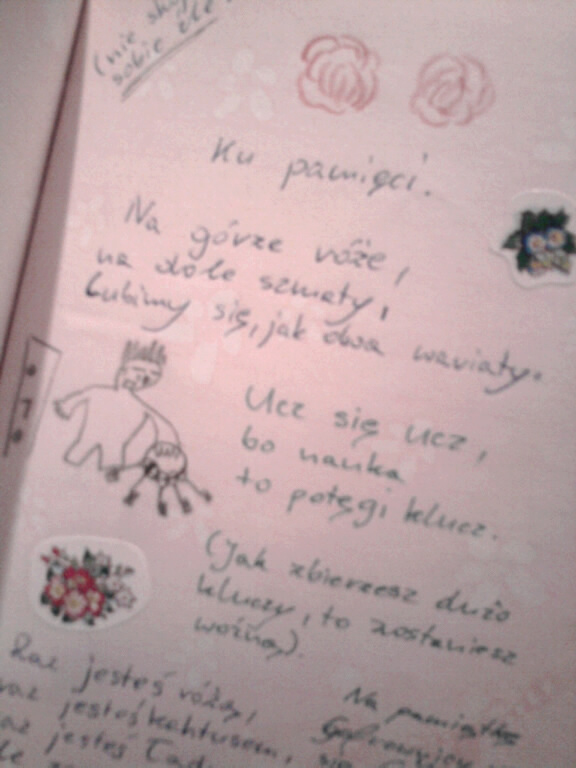 (nie
sobie źle
Ku pamięci.
Na górze róże,
na dole szmaty,
Lubimy się, jak dwa wariaty.
Ucz się ucz,
bo nauka
to potęgi klucz.
(Jak zbierzesz dużo
kluczy, to zostaniesz
woźną).
Raz jesteś różą,
raz jesteś kaktusem,
raz jesteś
Na pamiątkę